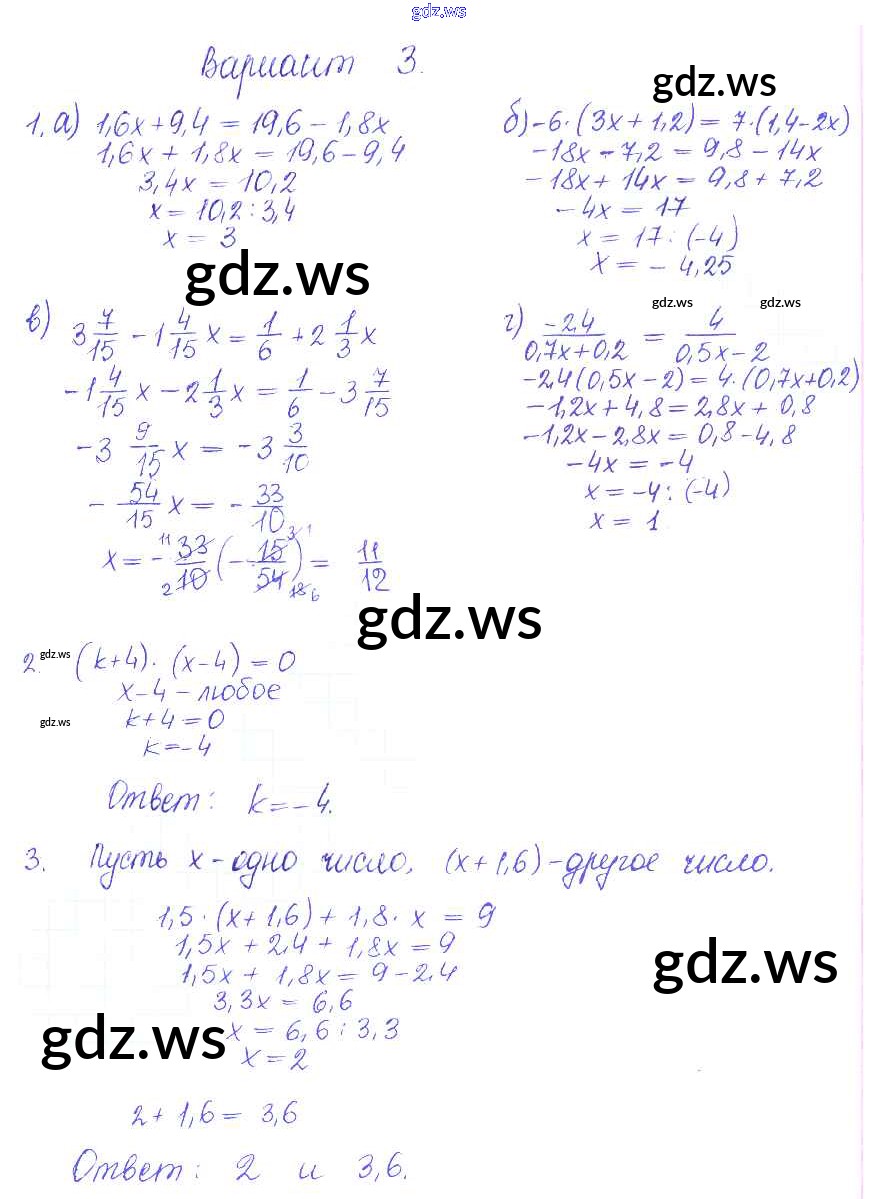 gdz.ws
Вариант 3.
gdz.ws
1. а) 1,6x + 9,4 = 19,6 - 1,8x
1,6x + 1,8x = 19,6 - 9,4
3,4x = 10,2
x = 10,2 : 3,4
x = 3
gdz.ws
б) -6·(3x + 1,2) = 7·(1,4 - 2x)
-18x - 7,2 = 9,8 - 14x
-18x + 14x = 9,8 + 7,2
-4x = 17
x = 17 : (-4)
x = -4,25
в) 3 7/15 - 1 4/15 x = 1/6 + 2 1/3 x
-1 4/15 x - 2 1/3 x = 1/6 - 3 7/15
-3 9/15 x = -3 3/10
- 54/15 x = - 33/10
x = - 33/10 (- 15/54) = 11/12
gdz.ws
gdz.ws gdz.ws
г) -2,4/(0,7x + 0,2) = 4/(0,5x - 2)
-2,4(0,5x - 2) = 4·(0,7x + 0,2)
-1,2x + 4,8 = 2,8x + 0,8
-1,2x - 2,8x = 0,8 - 4,8
-4x = -4
x = -4 : (-4)
x = 1
2. gdz.ws (k + 4)·(x - 4) = 0
x - 4 - любое
gdz.ws k + 4 = 0
k = -4
Ответ: k = -4.
3. Пусть x - одно число, (x + 1,6) - другое число.
1,5·(x + 1,6) + 1,8·x = 9
1,5x + 2,4 + 1,8x = 9
gdz.ws
1,5x + 1,8x = 9 - 2,4
3,3x = 6,6
gdz.ws x = 6,6 : 3,3
x = 2
2 + 1,6 = 3,6
Ответ: 2 и 3,6.